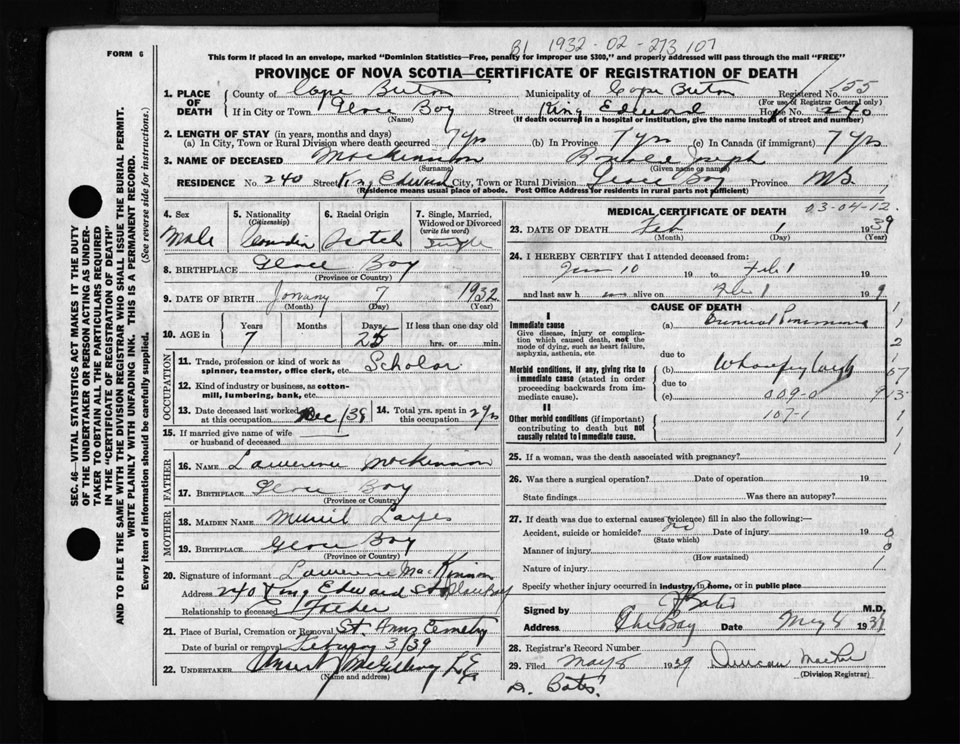 B1 1932-02-273107
FORM 6
This form if placed in an envelope, marked "Dominion Statistics—Free, penalty for improper use $300," and properly addressed will pass through the mail "FREE"
PROVINCE OF NOVA SCOTIA—CERTIFICATE OF REGISTRATION OF DEATH
1. PLACE OF DEATH County of Cape Breton Municipality of Cape Breton Registered No. 155
(For use of Registrar General only)
If in City or Town Glace Bay Street King Edward House No. 240
(Name) (If death occurred in a hospital or institution, give the name instead of street and number)
2. LENGTH OF STAY (in years, months and days)
(a) In City, Town or Rural Division where death occurred 7 yrs (b) In Province 7 yrs (c) In Canada (if immigrant) 7 yrs
3. NAME OF DECEASED MacKinnon Joseph
(Surname) (Given name or names)
RESIDENCE No. 240 Street King Edward City, Town or Rural Division Glace Bay Province N.S.
(Residence means usual place of abode. Post Office Address for residents in rural parts not sufficient)
4. Sex Male
5. Nationality (Citizenship) Canadian
6. Racial Origin Scotch
7. Single, Married, Widowed or Divorced (write the word) Single
8. BIRTHPLACE Glace Bay
(Province or Country)
9. DATE OF BIRTH January 7 1932
(Month) (Day) (Year)
10. AGE in Years 7 Months Days 25 If less than one day old
hrs. or min.
OCCUPATION
11. Trade, profession or kind of work as spinner, teamster, office clerk, etc. Scholar
12. Kind of industry or business, as cotton-mill, lumbering, bank, etc.
13. Date deceased last worked at this occupation Dec/38 14. Total yrs. spent in this occupation 2 yrs
15. If married give name of wife or husband of deceased
FATHER
16. NAME Lawrence MacKinnon
17. BIRTHPLACE Glace Bay
(Province or Country)
MOTHER
18. MAIDEN NAME
19. BIRTHPLACE Glace Bay
(Province or Country)
20. Signature of informant Lawrence MacKinnon
Address 240 King Edward St Glace Bay
Relationship to deceased Father
21. Place of Burial, Cremation or Removal St. Anns Cemetry
Date of burial or removal February 3/39
22. UNDERTAKER
(Name and address)
MEDICAL CERTIFICATE OF DEATH 03-04-12.
23. DATE OF DEATH Feb 1 1939
(Month) (Day) (Year)
24. I HEREBY CERTIFY that I attended deceased from:
Jan 10 19 to Feb 1 19
and last saw h alive on Feb 1 19 9
CAUSE OF DEATH
I
Immediate cause
Give disease, injury or complication which caused death, not the mode of dying, such as heart failure, asphyxia, asthenia, etc
(a) Pneumonia
due to
Morbid conditions, if any, giving rise to immediate cause (stated in order proceeding backwards from immediate cause).
(b) Whooping Cough
due to
(c) 009-0
II
Other morbid conditions (if important) contributing to death but not causally related to Immediate cause.
107-1
25. If a woman, was the death associated with pregnancy?
26. Was there a surgical operation? Date of operation 19
State findings Was there an autopsy?
27. If death was due to external causes (violence) fill in also the following:—
Accident, suicide or homicide? no Date of injury 19
(State which)
Manner of injury
(How sustained)
Nature of injury
Specify whether injury occurred in industry, in home, or in public place
Signed by Bates M.D.
Address Date May 8 1939
28. Registrar's Record Number
29. Filed May 8 1939 Duncan
(Division Registrar)
D. Bates
SEC. 46—VITAL STATISTICS ACT MAKES IT THE DUTY
OF THE UNDERTAKER OR PERSON ACTING AS UNDER-
TAKER TO OBTAIN ALL THE PARTICULARS REQUIRED
IN THE "CERTIFICATE OF REGISTRATION OF DEATH"
AND TO FILE THE SAME WITH THE DIVISION REGISTRAR WHO SHALL ISSUE THE BURIAL PERMIT.
WRITE PLAINLY WITH UNFADING INK. THIS IS A PERMANENT RECORD.
Every item of information should be carefully supplied. (See reverse side for instructions.)